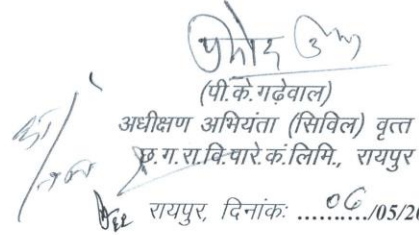 (पी.के.गढ़ेवाल)
अधीक्षण अभियंता (सिविल) वृत्त
छ.ग.रा.वि.पारे.कं.लिमि., रायपुर
रायपुर, दिनांकः ....06..../05/20